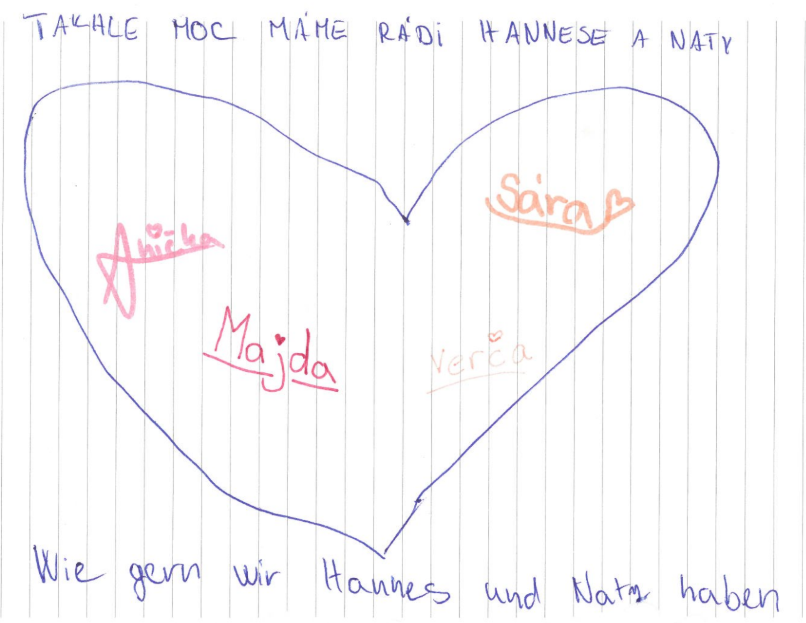 TAKHLE MOC MÁME RÁDI HANNESE A NATY
Sára
Anička
Majda
Verča
Wie gern wir Hannes und Naty haben